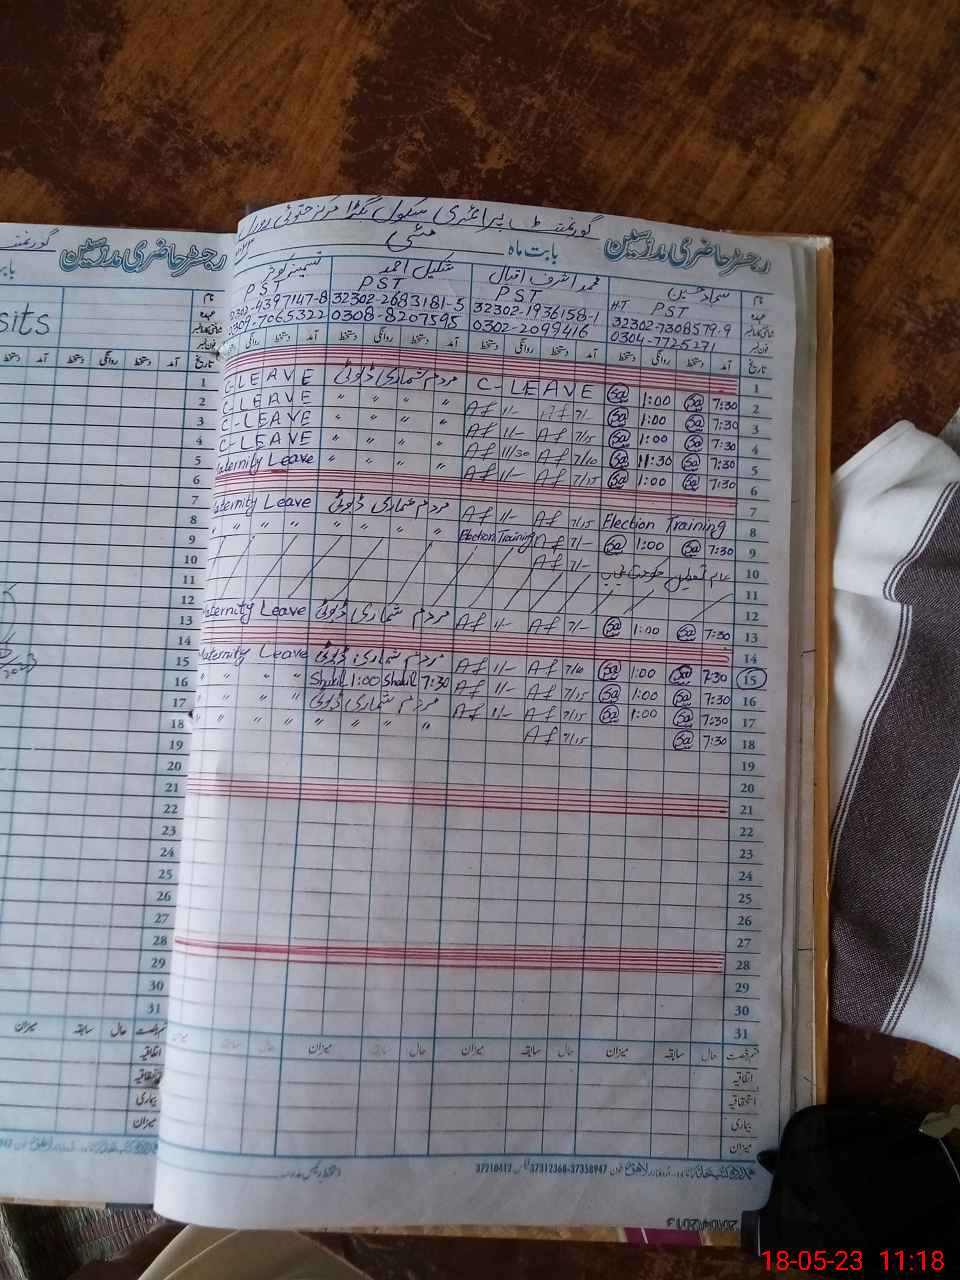 گورنمنٹ پرائمری سکول
رجسٹر حاضری مدرسین
بابت ماہ مئی
نام سجاد حسین محمد اشرف اقبال شکیل احمد تسمینہ کوثر
عہدہ H.T PST PST PST PST
32302-7308579-9 32302-1936158-1 32302-2683181-5 32302-4397147-8
فون نمبر 0304-7725271 0302-2099416 0308-8207595 0309-7065322
تاریخ آمد دستخط روانگی دستخط آمد دستخط روانگی دستخط آمد دستخط روانگی دستخط آمد دستخط روانگی
1
2 7:30 Sa 1:00 Sa C-LEAVE مردم شماری ڈیوٹی C-LEAVE
3 7:30 Sa 1:00 Sa Af 7/- Af 1/- " " " " C-LEAVE
4 7:30 Sa 1:00 Sa Af 7/15 Af 1/- " " " " C-LEAVE
5 7:30 Sa 11:30 Sa Af 7/10 Af 11/30 " " " " C-LEAVE
6 7:30 Sa 1:00 Sa Af 7/15 Af 1/- " " " " Maternity Leave
7
8 Election Training Af 7/15 Af 1/- مردم شماری ڈیوٹی Maternity Leave
9 7:30 Sa 1:00 Sa Af 7/- Election Training " " " " " " " "
10 عام تعطیل حکومت پنجاب Af 7/-
11
12
13 7:30 Sa 1:00 Sa Af 7/- Af 1/- مردم شماری ڈیوٹی Maternity Leave
14
15 7:30 Sa 1:00 Sa Af 7/10 Af 1/- مردم شماری ڈیوٹی Maternity Leave
16 7:30 Sa 1:00 Sa Af 7/15 Af 1/- 7:30 Shakil 1:00 Shakil " " " "
17 7:30 Sa 1:00 Sa Af 7/15 Af 1/- مردم شماری ڈیوٹی " " " "
18 7:30 Sa Af 7/15 " " " " " " " "
19
20
21
22
23
24
25
26
27
28
29
30
31
حال سابقہ میزان حال سابقہ میزان حال سابقہ میزان حال سابقہ
اتفاقیہ
استحقاقیہ
بیماری
میزان
37210417 37312368-37358947
sits
18-05-23 11:18